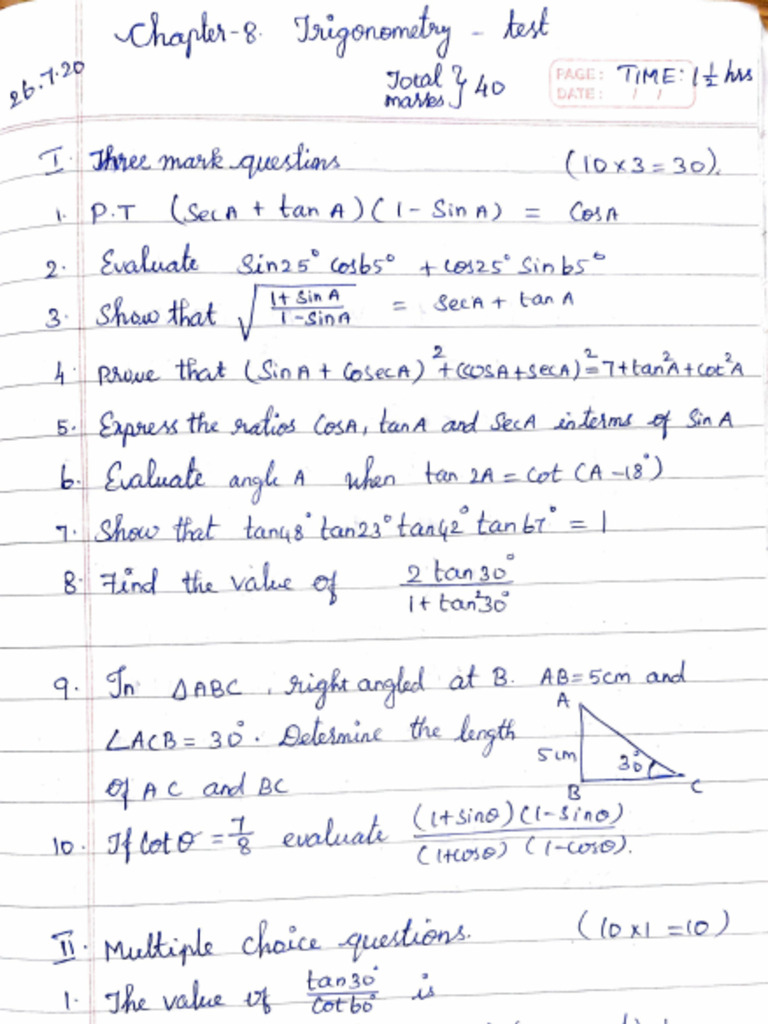 Chapter-8. Trigonometry - test
26.7.20 Total marks } 40 PAGE: DATE: / / TIME: 1 1/2 hrs
I. Three mark questions (10 x 3 = 30).
1. P.T (Sec A + tan A) (1 - Sin A) = Cos A
2. Evaluate Sin25° Cos65° + Cos25° Sin65°
3. Show that √((1 + Sin A)/(1 - Sin A)) = Sec A + tan A
4. Prove that (Sin A + Cosec A)² + (Cos A + Sec A)² = 7 + tan²A + Cot²A
5. Express the ratios Cos A, tan A and Sec A in terms of Sin A
6. Evaluate angle A when tan 2A = Cot (A - 18°)
7. Show that tan48° tan23° tan42° tan67° = 1
8. Find the value of (2 tan30°)/(1 + tan²30°)
9. In ΔABC, right angled at B. AB = 5cm and
∠ACB = 30°. Determine the length
of AC and BC
A
5cm 30°
B C
10. If Cot θ = 7/8 evaluate ((1 + sin θ)(1 - sin θ))/((1 + cos θ)(1 - cos θ)).
II. Multiple choice questions. (10 x 1 = 10)
1. The value of tan30°/Cot60° is